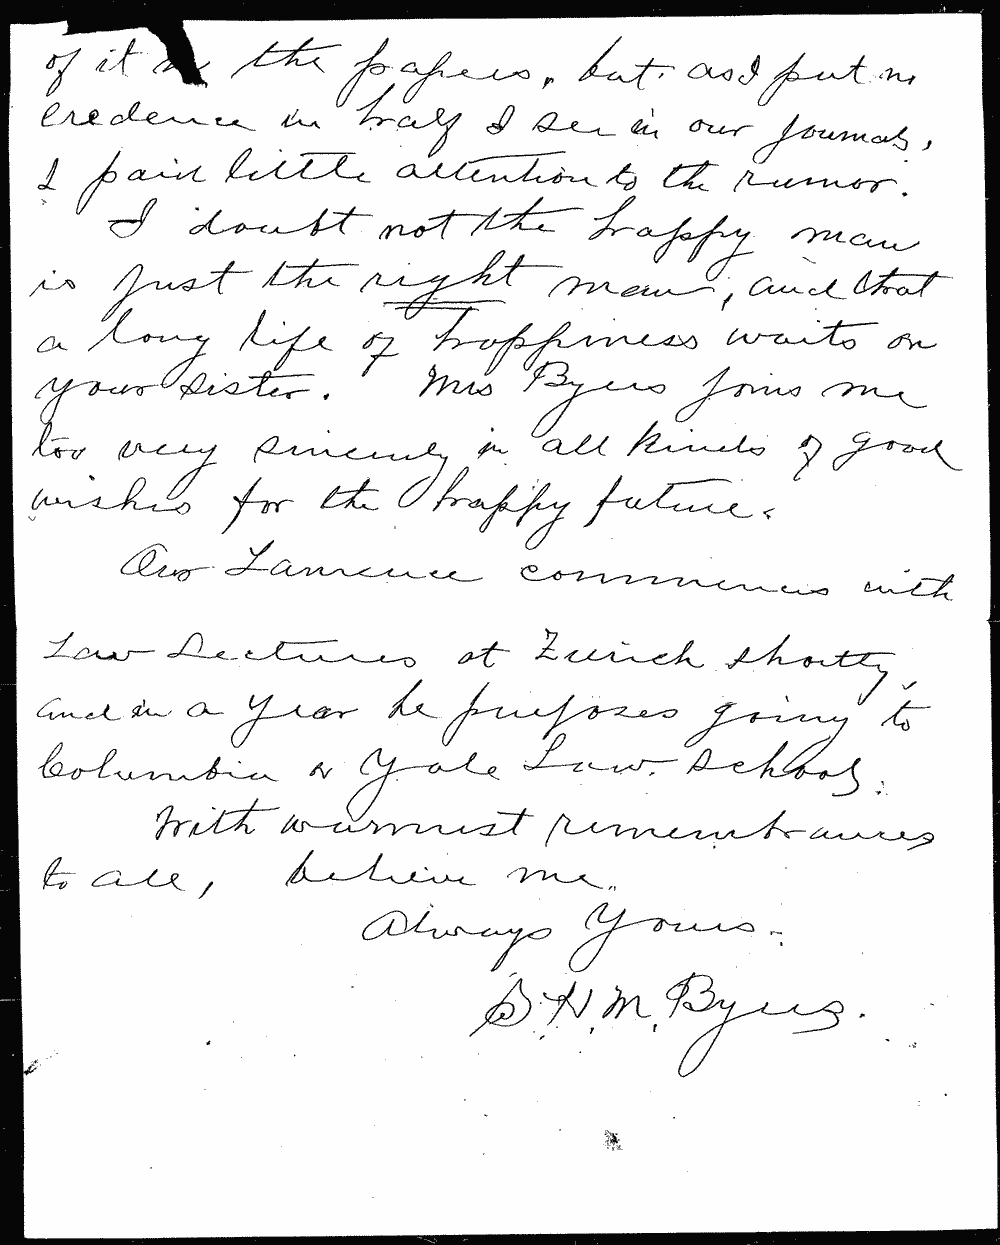 of it in the papers, but as I put no
credence in half I see in our journals,
I paid little attention to the rumor.
I doubt not the happy man
is just the right man, and that
a long life of happiness waits on
your sister. Mrs Byers joins me
too very sincerely in all kinds of good
wishes for the happy future.
Our Lawrence commences with
Law Lectures at Zurich shortly,
and in a year he purposes going to
Columbia or Yale Law Schools.
With warmest remembrances
to all, believe me,
Always Yours.
S. H. M. Byers.